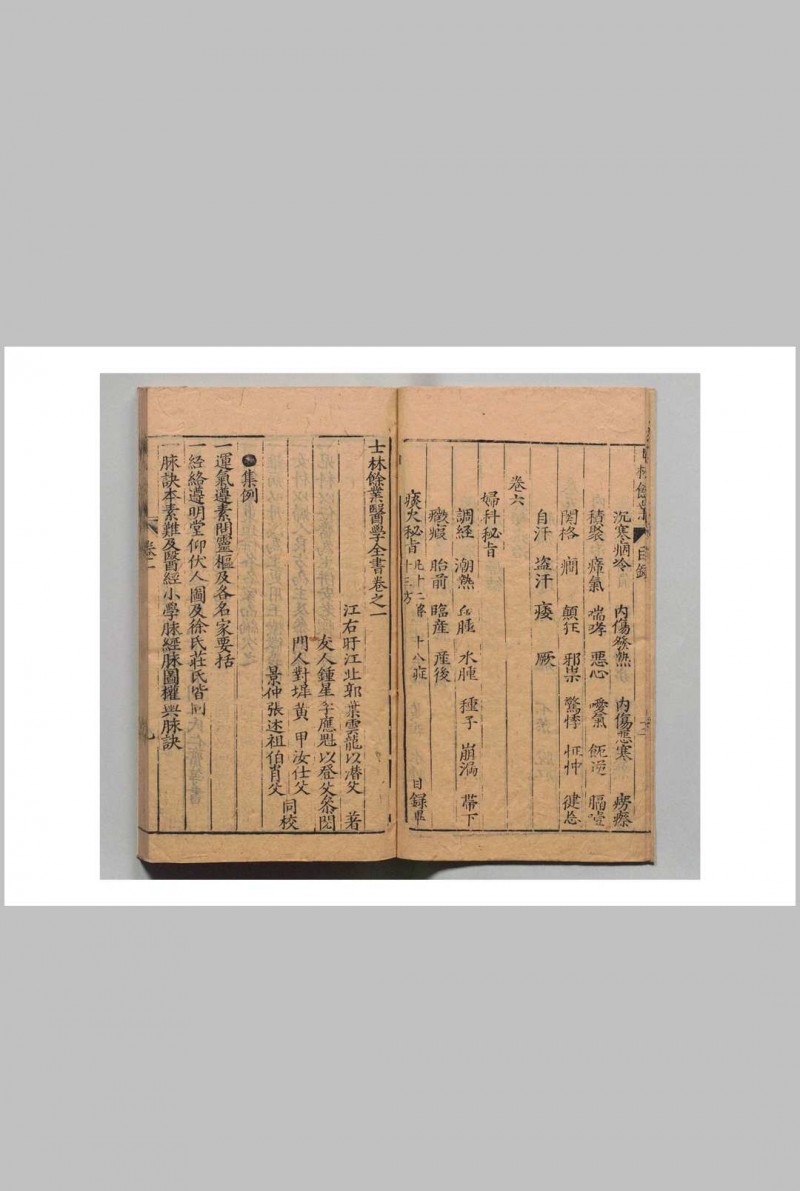 士林餘業 目錄
沉寒痼冷 內傷發熱 內傷惡寒 癆瘵
積聚 瘴氣 喘哮 惡心 噯氣 呃逆 膈噎
関格 癇 顛狂 邪祟 驚悸 怔忡 健忘
自汗 盗汗 痿 厥
卷六
婦科秘旨
調経 潮熱 血腫 水腫 種子 崩漏 帶下
癥瘕 胎前 臨産 産後
痰火秘旨 十八症 目錄畢
十三方
士林餘業醫學全書卷之一
江右盱江北郭葉雲龍以潛父 著
友人鍾星 應魁以登父叅閱
門人對墀黃 甲汝仕父
景仲張述祖伯肖父 同校
集例
一運氣遵素問靈樞及各名家要括
一経絡遵明堂仰伏人圖及徐氏莊氏皆同
一脉訣本素難及醫經小學脉經脉圖權輿脉訣
卷一